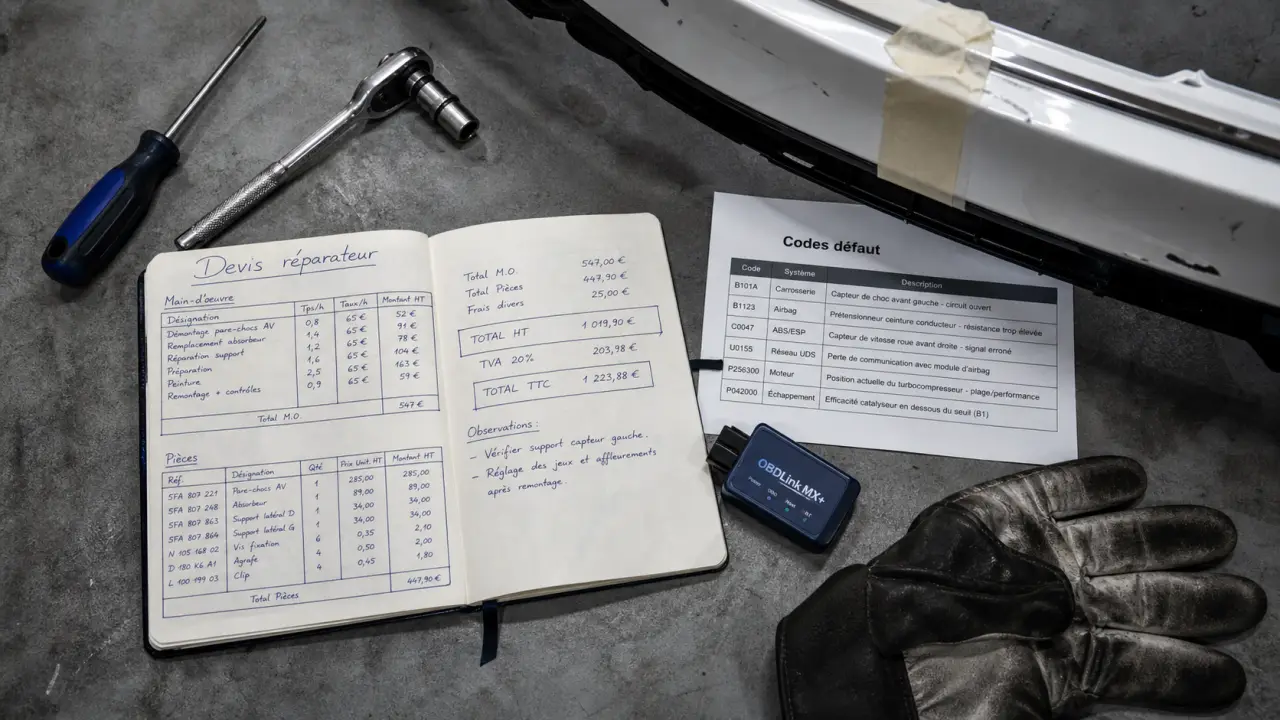 Devis réparateur
Main-d'oeuvre
Désignation Tps/h Taux/h Montant HT
Démontage pare-chocs AV 0,8 65 € 52 €
Remplacement absorbeur 1,4 65 € 91 €
Réparation support 1,2 65 € 78 €
Préparation 1,6 65 € 104 €
Peinture 2,5 65 € 163 €
Remontage + contrôles 0,9 65 € 59 €
Total M.O. 547 €
Pièces
Réf. Désignation Qté Prix Unit. HT Montant HT
5FA 807 221 Pare-chocs AV 1 285,00 285,00
5FA 807 248 Absorbeur 1 89,00 89,00
5FA 807 863 Support latéral D 1 34,00 34,00
5FA 807 864 Support latéral G 1 34,00 34,00
N 105 168 02 Vis fixation 6 0,35 2,10
D 180 K6 A1 Agrafe 4 0,50 2,00
L 100 199 03 Clip 4 0,45 1,80
Total Pièces 447,90 €
Total M.O. 547,00 €
Total Pièces 447,90 €
Frais divers 25,00 €
TOTAL HT 1 019,90 €
TVA 20% 203,98 €
TOTAL TTC 1 223,88 €
Observations :
- Vérifier support capteur gauche.
- Réglage des jeux et affleurements
après remontage.
Codes défaut
Code Système Description
B101A Carrosserie Capteur de choc avant gauche - circuit ouvert
B1123 Airbag Prétensionneur ceinture conducteur - résistance trop élevée
C0047 ABS/ESP Capteur de vitesse roue avant droite - signal erroné
U0155 Réseau UDS Perte de communication avec module d'airbag
P256300 Moteur Position actuelle du turbocompresseur - plage/performance
P042000 Échappement Efficacité catalyseur en dessous du seuil (B1)
OBDLink MX+
Power